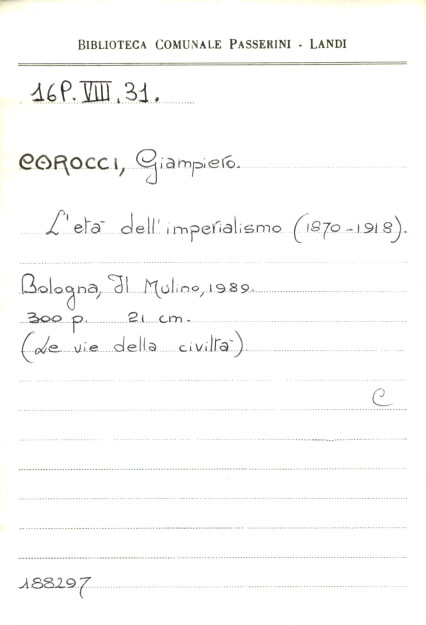 BIBLIOTECA COMUNALE PASSERINI - LANDI
16P.VIII.31.
CAROCCI, Giampiero.
L'età dell'imperialismo (1870-1918).
Bologna, Il Mulino, 1989.
300 p. 21 cm.
(Le vie della civiltà).
C
188297